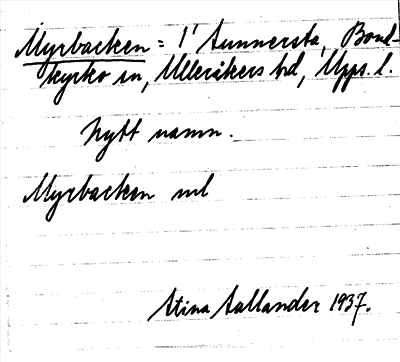 Myrbacken = 1' Sunnersta, Bond-
kyrko sn, Ulleråkers hd, Upps. l.
Nytt namn.
Myrbacken ml
Stina Sallander 1937.